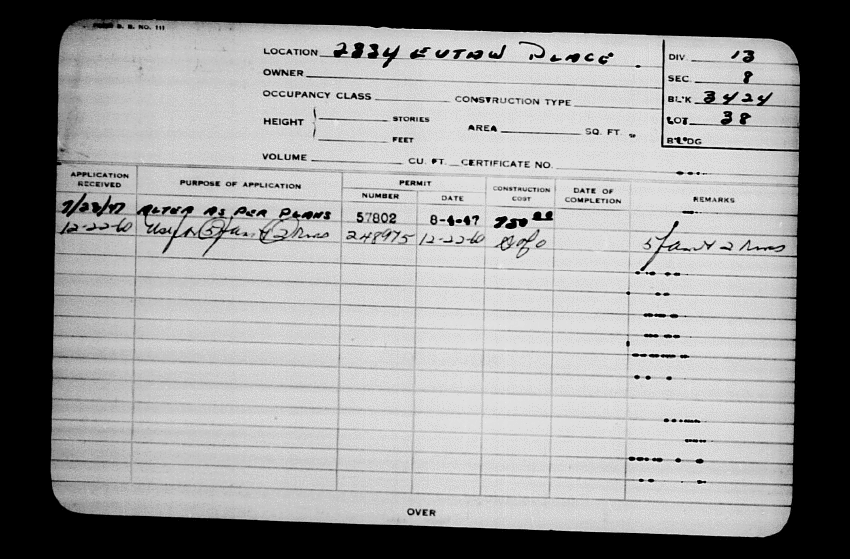 FORM B. B. NO. 111
LOCATION 2834 EUTAW PLACE
DIV. 13
OWNER
SEC. 8
OCCUPANCY CLASS CONSTRUCTION TYPE
BL'K 3424
HEIGHT STORIES
FEET
AREA SQ. FT.
LOT 38
BLDG
VOLUME CU. FT. CERTIFICATE NO.
APPLICATION RECEIVED PURPOSE OF APPLICATION PERMIT NUMBER DATE CONSTRUCTION COST DATE OF COMPLETION REMARKS
7/23/47 ALTER AS PER PLANS 57802 8-4-47 750 00
12-22-60 Use for 5 fam & 2 Rms 248975 12-22-60 5 fam & 2 Rms
OVER